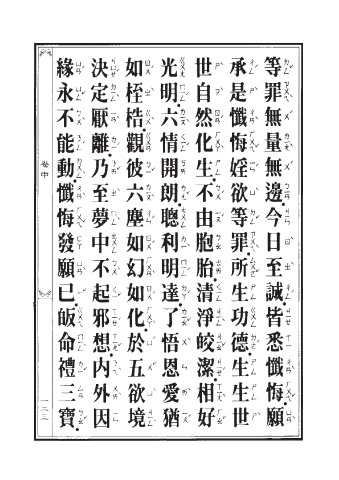 等罪無量無邊今日至誠皆悉懺悔願
承是懺悔婬欲等罪所生功德生生世
世自然化生不由胞胎清淨皎潔相好
光明六情開朗聰利明達了悟恩愛猶
如桎梏觀彼六塵如幻如化於五欲境
決定厭離乃至夢中不起邪想內外因
緣永不能動懺悔發願已皈命禮三寶
卷中
一二三